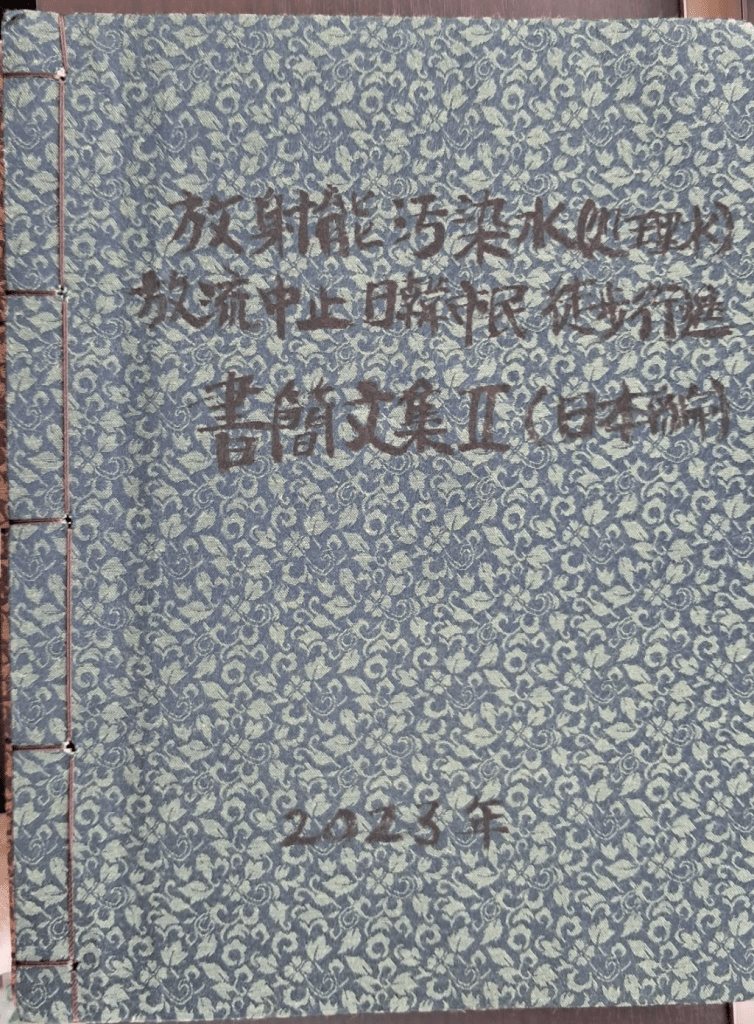 放射能汚染水(処理水)
放流中止日韓市民徒歩行進
書簡文集Ⅱ(日本編)
2023年